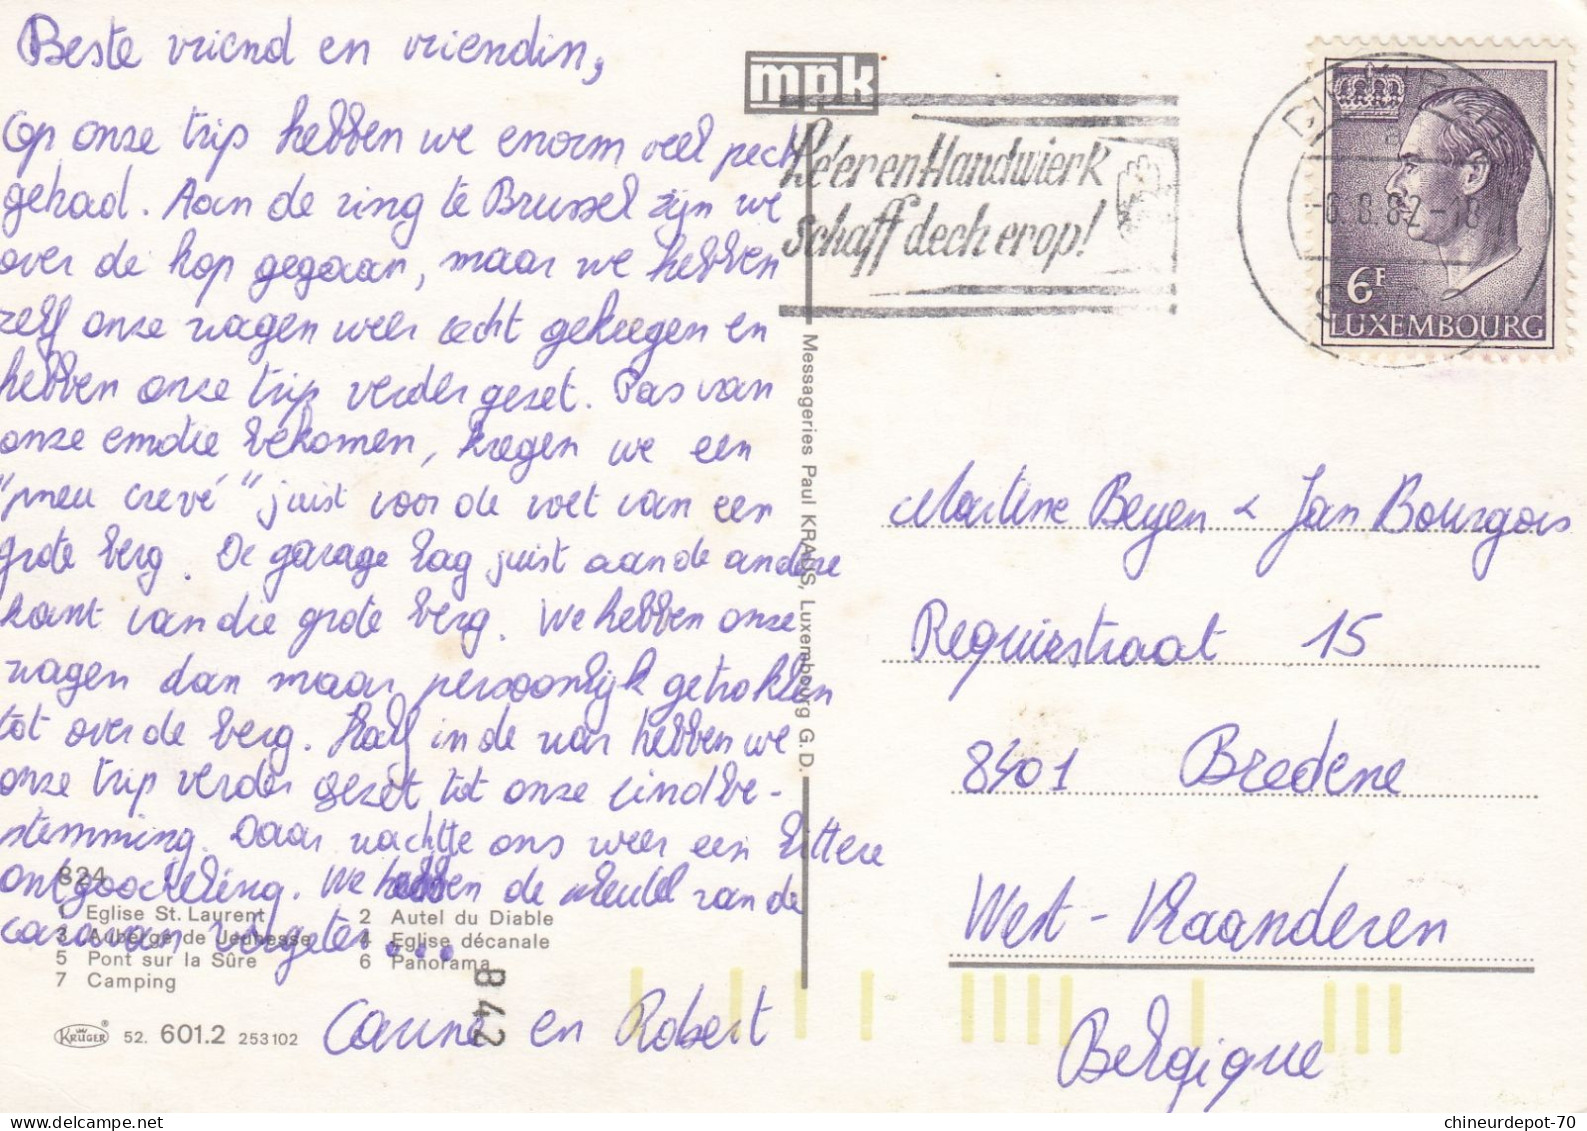 Beste vriend en vriendin,
Op onze trip hebben we enorm veel pech
gehad. Aan de ring te Brussel zijn we
over de kop gegaan, maar we hebben
zelf onze wagen weer recht gekregen en
hebben onze trip verder gezet. Pas van
onze emotie bekomen, kregen we een
"pneu crevé" juist voor de voet van een
grote berg. De garage lag juist aan de andere
kant van die grote berg. We hebben onze
wagen dan maar persoonlijk getrokken
tot over de berg. Half in de
hebben we
onze trip verder gezet tot onze eindbe-
stemming. Daar wachtte ons weer een bittere
ontgoocheling. We hebben de sleutel van de
caravan vergeten...
Carine en Robert
824
1 Eglise St. Laurent
2 Autel du Diable
3 Auberge de Jeunesse
4 Eglise décanale
5 Pont sur la Sûre
6 Panorama
7 Camping
KRÜGER ® 52. 601.2 253102
842
mpk
Léier en Handwierk
schaff dech erop!
Messageries Paul KRAUS, Luxembourg G.D.
8.82-18
6F
LUXEMBOURG
Marlene Beyen & Jan Bourgois
Requierstraat 15
8401 Bredene
West-Vlaanderen
Belgique
chineurdepot-70